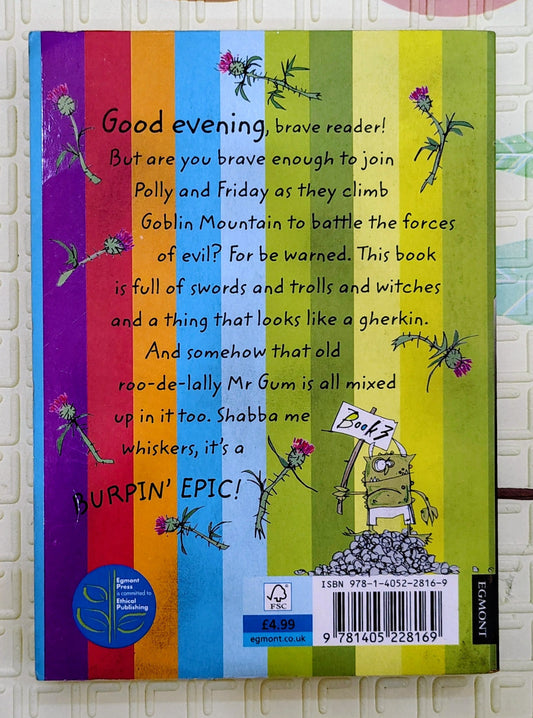 Good evening, brave reader!
But are you brave enough to join
Polly and Friday as they climb
Goblin Mountain to battle the forces
of evil? For be warned. This book
is full of swords and trolls and witches
and a thing that looks like a gherkin.
And somehow that old
roo-de-lally Mr Gum is all mixed
up in it too. Shabba me
whiskers, it's a
BURPIN' EPIC!
Book 3
Egmont
Press
is committed to
Ethical
Publishing
FSC
£4.99
egmont.co.uk
ISBN 978-1-4052-2816-9
9 781405 228169
EGMONT